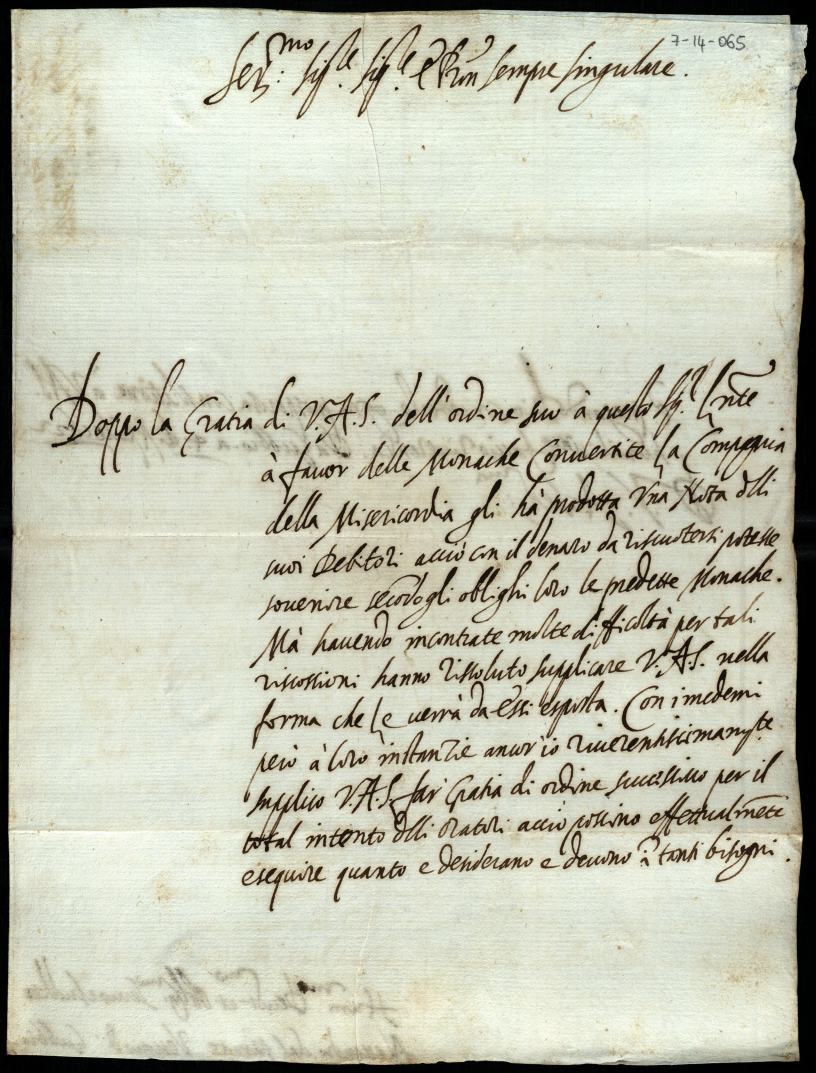 7-14-065
Ser.mo Sig.re Sig.re e Pron sempre singulare.
Doppo la Gratia di V.A.S. dell'ordine suo à questo Sig.r Lnte
à favor delle Monache Convertite la Compagnia
della Misericordia gli hà prodotta una Nota dlli
suoi Debitori acciò con il denaro da riscuotersi potesse
sovenire secodo gli oblighi loro le predette Monache.
Mà havendo incontrate molte difficoltà per tali
riscossioni hanno rissoluto supplicare V.A.S. nella
forma che le verrà da essi esposta. Con i medemi
però à loro instanzie ancor'io riverentissimamte
supplico V.A.S. far Gratia di ordine successivo per il
total intento dlli oratori acciò possino effettualmete
esequire quanto e desiderano e devono à tanti bisogni.